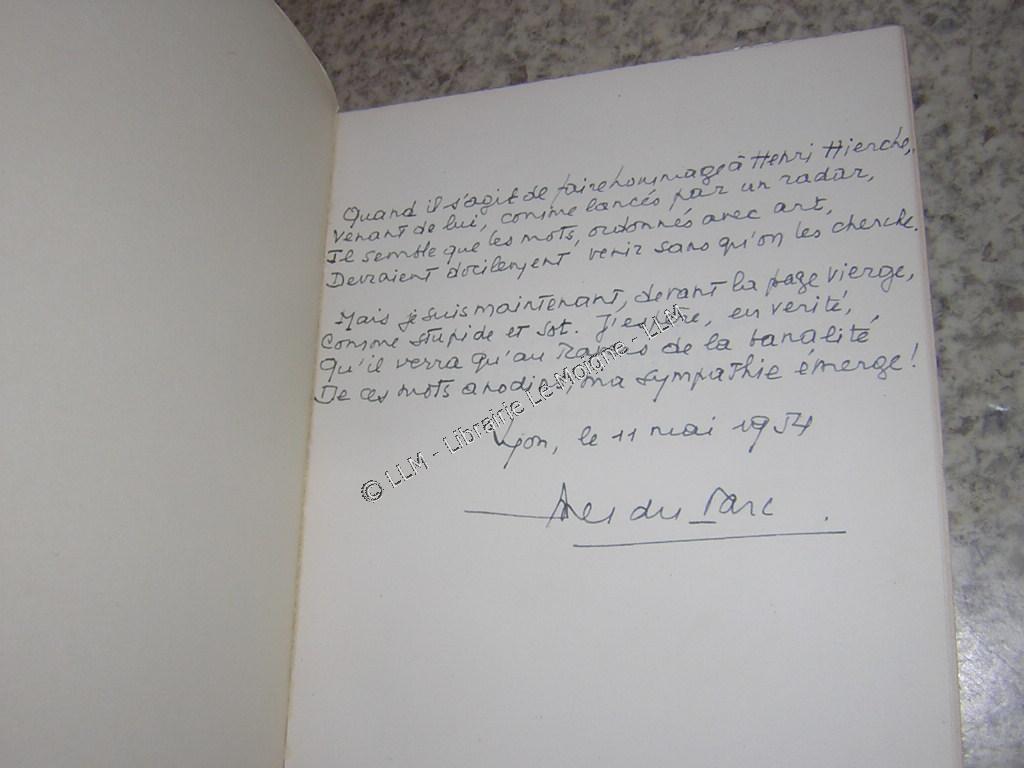 Quand il s'agit de faire hommage à Henri Hierche,
Venant de lui, comme lancés par un radar,
Il semble que les mots, ordonnés avec art,
Devraient docilement venir sans qu'on les cherche.
Mais je suis maintenant, devant la page vierge,
Comme stupide et sot. J'espère, en verité,
Qu'il verra qu'au de la banalité
De ces mots anodins, ma sympathie émerge!
Lyon, le 11 mai 1954
du Parc
© LLM - Librairie Le Moigne - LLM